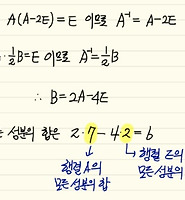 A(A-2E) = E 이므로 A⁻¹ = A-2E
½B=E 이므로 A⁻¹=½B
∴ B=2A-4E
성분의 합은 2·7-4·2=6
행렬 A의 행렬 E의
모든성분의 합 모든성분의